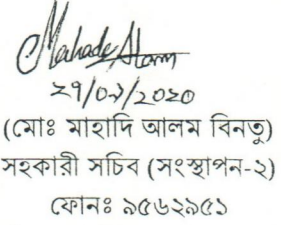 Mahade Alam
২৭/০৮/২০২০
(মোঃ মাহাদি আলম বিনতু)
সহকারী সচিব (সংস্থাপন-২)
ফোনঃ ৯৫৬২৯৫১